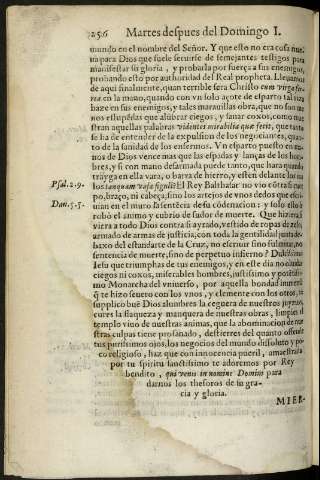 256 Martes despues del Domingo I.
mundo en el nombre del Señor. Y que esto no era cosa nue-
ua para Dios que suele seruirse de semejantes testigos para
manifestar su gloria, y probarla por fuerça a sus enemigos,
probando esto por authoridad del Real propheta. Lleuamos
de aqui finalmente, quan terrible sera Christo cum virga fer-
rea en la mano, quando con vn solo açote de esparto tal riza
haze en sus enemigos, y tales marauillas obra, que no son me
nos estupēdas que alūbrar ciegos, y sanar coxos, como mue
stran aquellas palabras videntes mirabilia que fecit, que tanto
se hā de entender de la expulsiō de los negociantes, quan-
to de la sanidad de los enfermos. Vn esparto puesto en ma-
nos de Dios vence mas que las espadas y lanças de los hom-
bres, y si con mano desarmada puede tanto, que hara quando
trayga en ella vara, o barra de hierro, y esten delante los ma
Psal. 2. 9. los tanquam vasa figuli? El Rey Balthasar no vio cōtra si cuer
po, braço, ni cabeça, sino los artejos de vnos dedos que escri
Dan. 5. 5. uian en el muro la sentēcia de su cōdenacion: y solo esto le
robò el animo y cubrio de sudor de muerte. Que hiziera si
viera a todo Dios contra si ayrado, vestido de ropas de zelo,
armado de armas de justicia, con toda la gentilidad junta de-
baxo del estandarte de la Cruz, no escreuir sino fulminar, no
sentencia de muerte, sino de perpetuo infierno? Dulcissimo
Iesu que triumphas de tus enemigos, y en este dia no oluidas
ciegos ni coxos, miserables hombres, justissimo y potētissi-
mo Monarcha del vniuerso, por aquella bondad inmensa
q̄ te hizo seuero con los vnos, y clemente con los otros, te
supplico buē Dios alumbres la ceguera de nuestros juyzios,
cures la flaqueza y manquera de nuestras obras, limpies el
templo viuo de nuestras animas, que la abominacion de nue
stras culpas tiene profanado, destierres del quanto offende
tus purissimos ojos, los negocios del mundo dissoluto y po-
co religioso, haz que con innocencia pueril, amaestrada
por tu spiritu sanctissimo te adoremos por Rey
bendito, qui venis in nomine Domini para
darnos los thesoros de tu gra-
cia y gloria.
MIER-